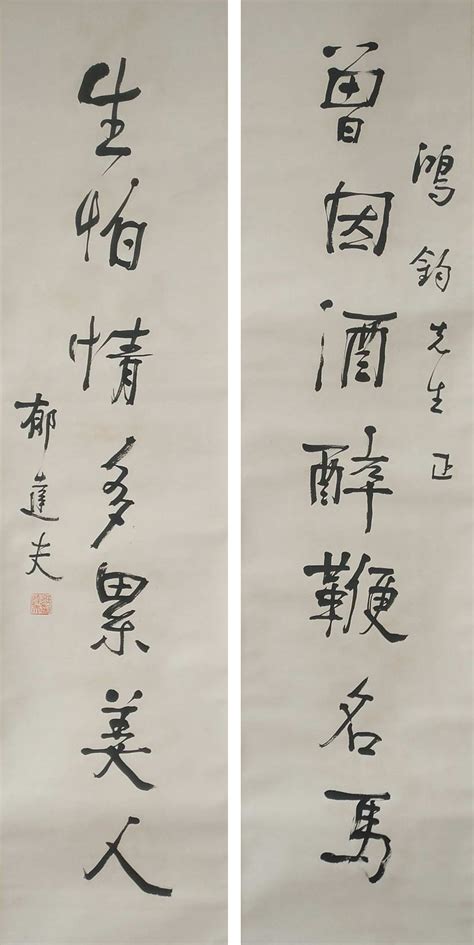 鴻鈞先生正
曾因酒醉鞭名馬
生怕情多累美人
郁達夫